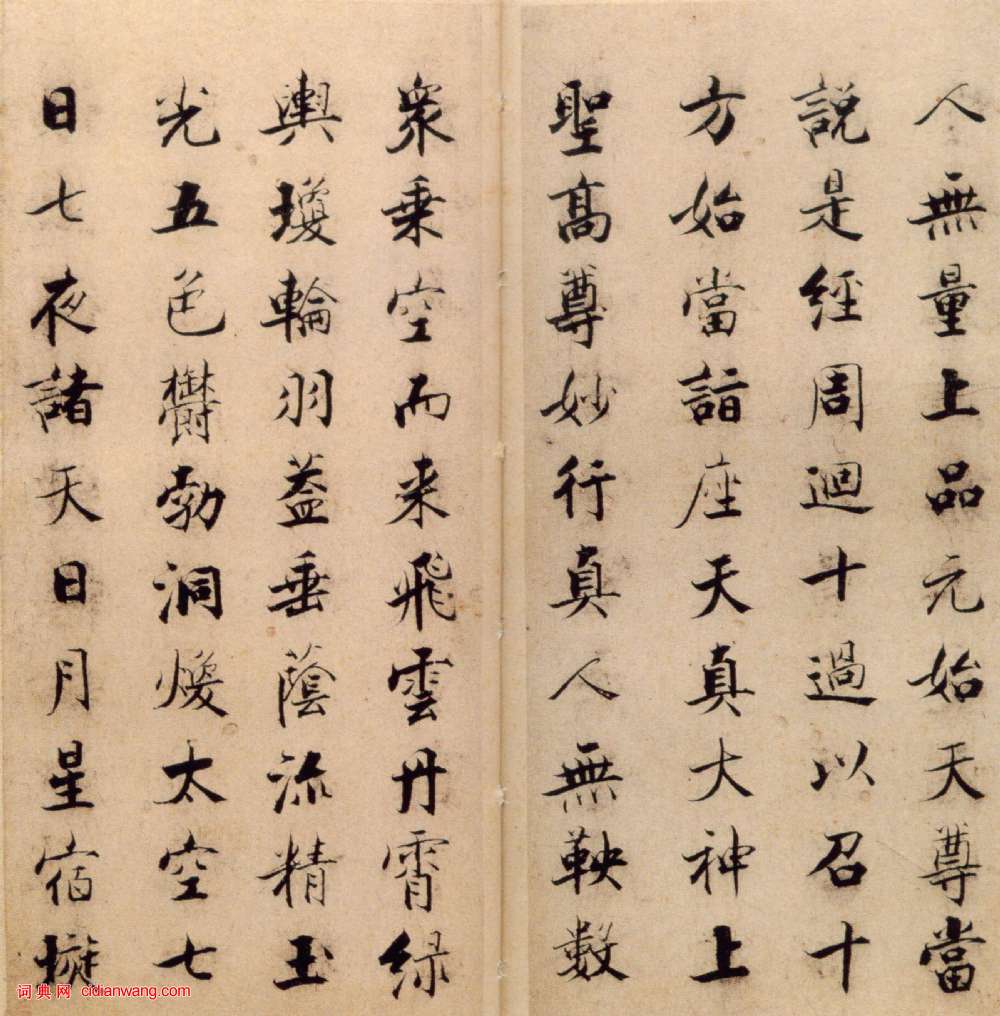 人無量上品元始天尊當
說是經周迴十過以召十
方始當詣座天真大神上
聖髙尊妙行真人無鞅數
衆乗空而来飛雲丹霄緑
輿瓊輪羽盖垂蔭流精玉
光五色欝勃洞煥太空七
日七夜諸天日月星宿璇
词典网 cidianwang.com